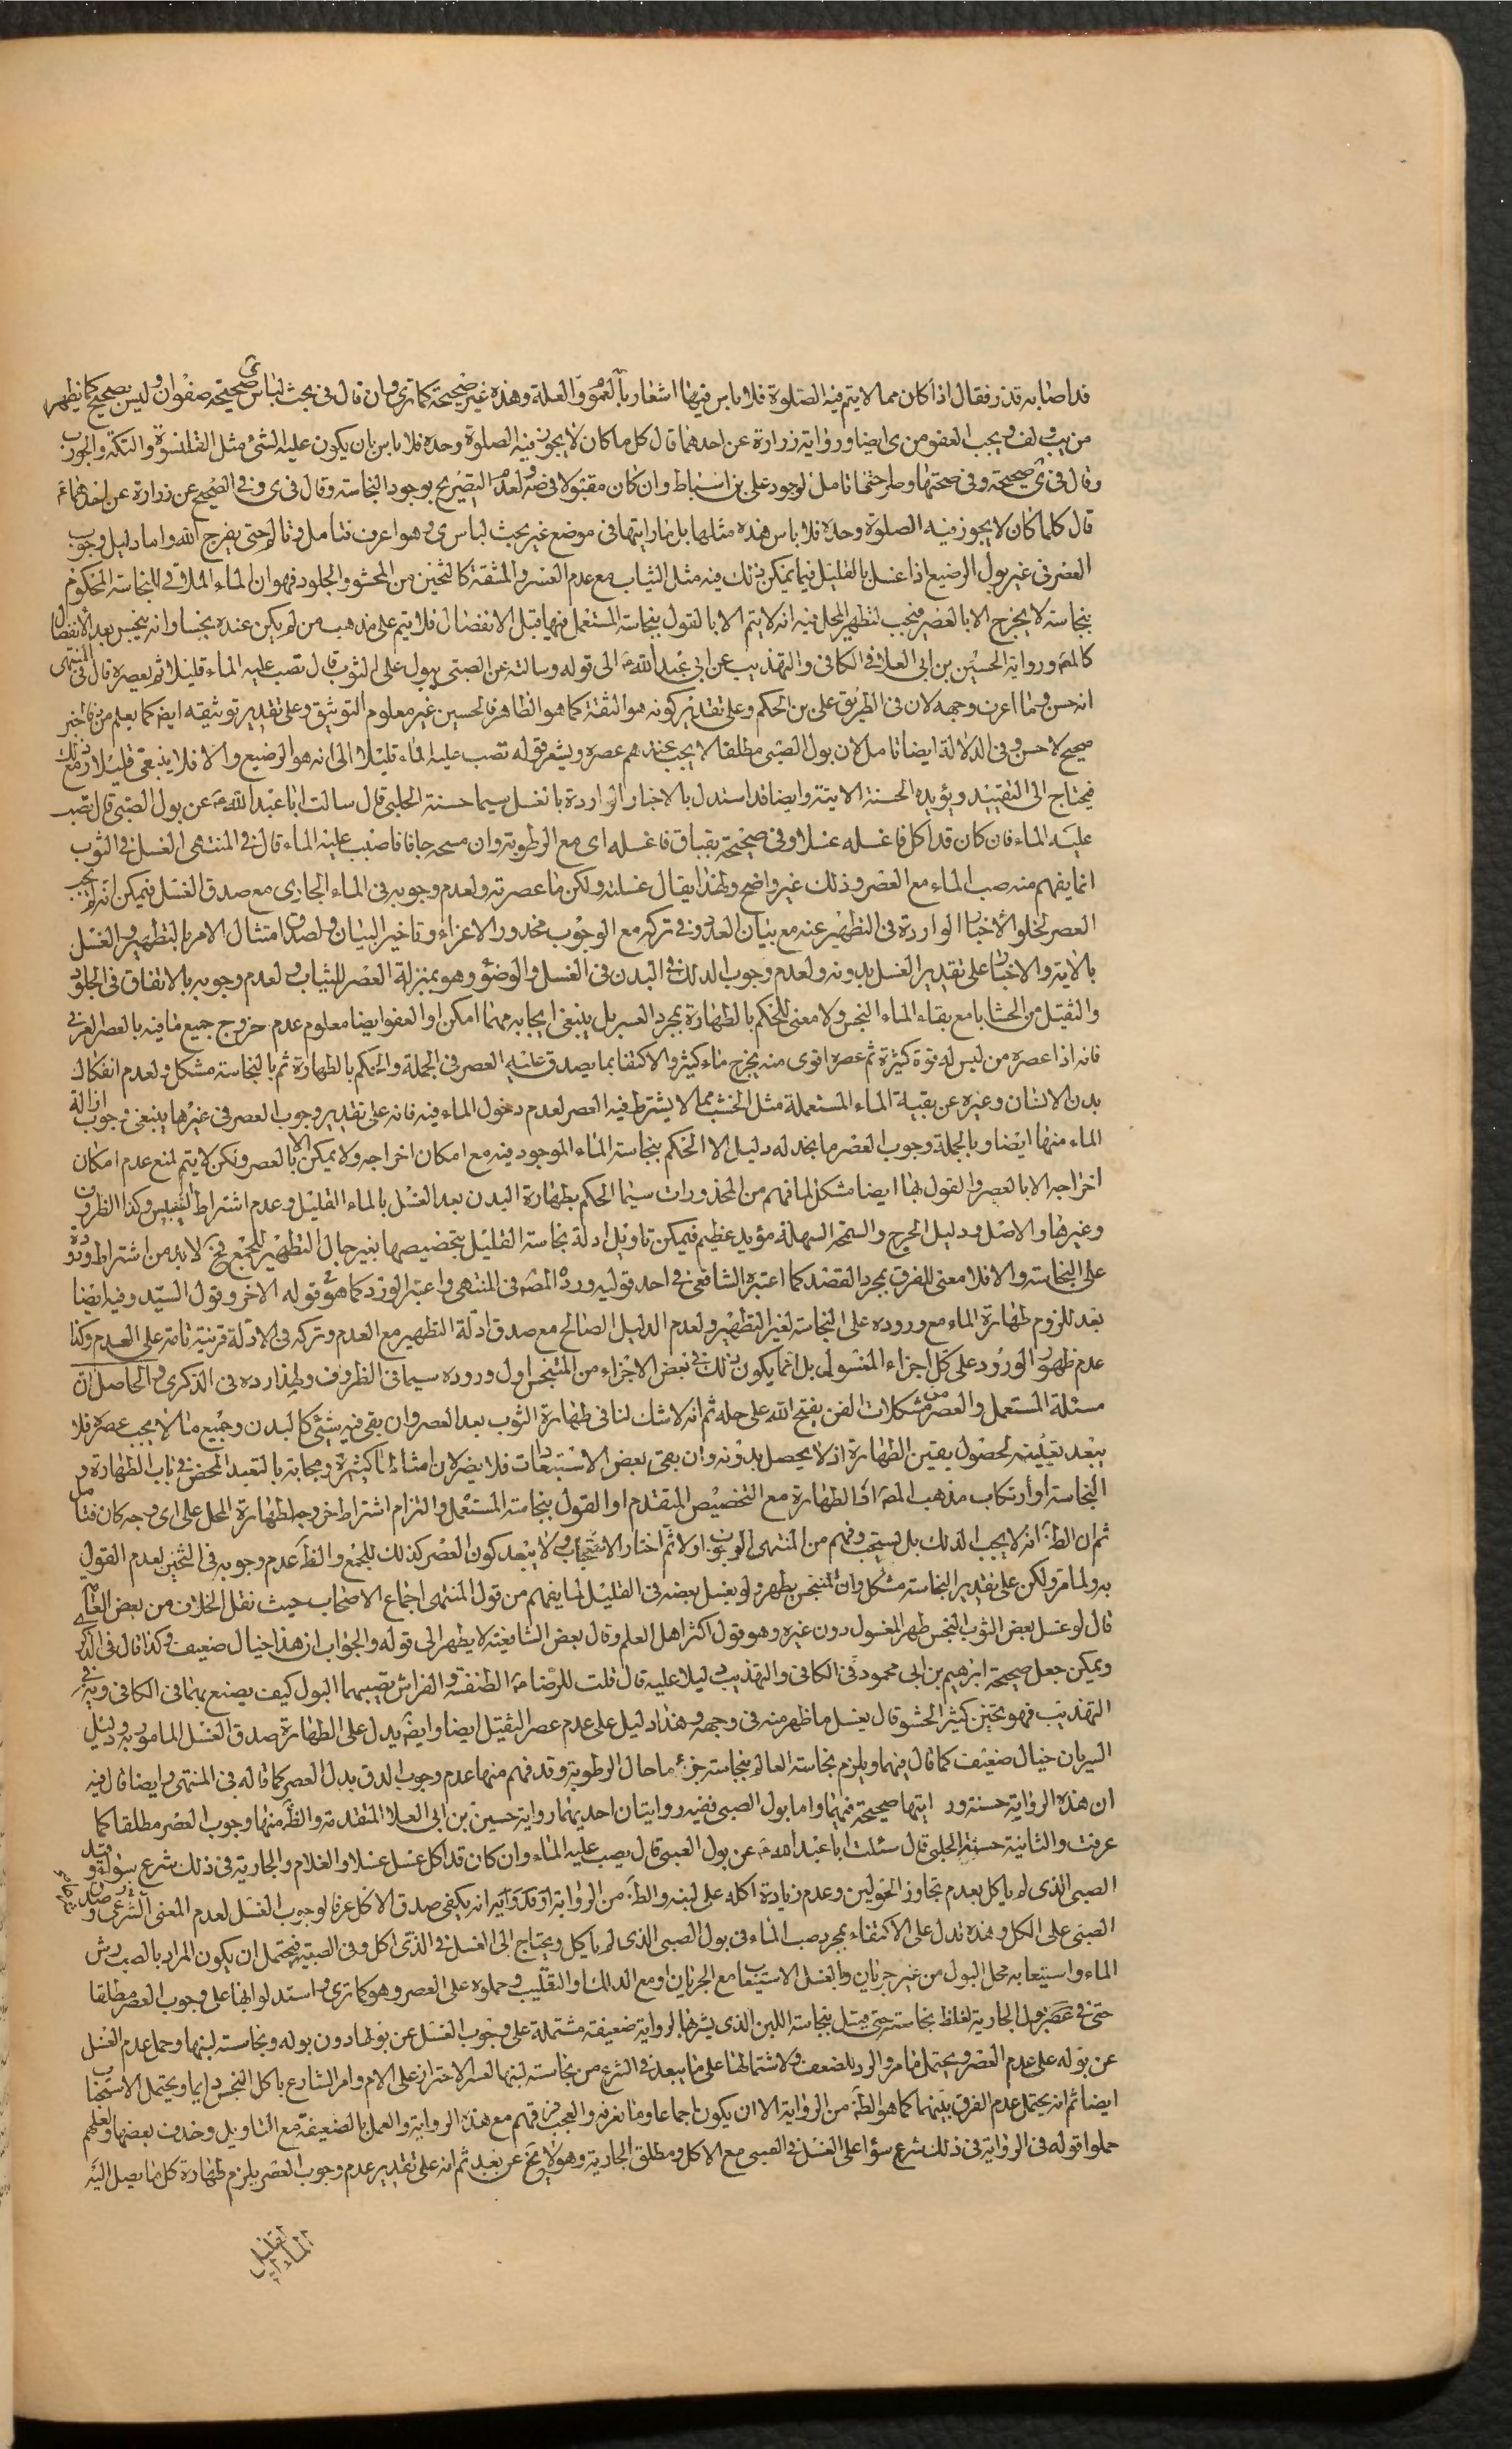 قد اصابه قذر فقال اذا كان مما لا يتم فيه الصلوة فلا باس فيها اشعار بالعموم والعلة وهذه غير صحيحة كما ترى وان قال فى بحث لباس ى صحيحة صفوان وليس بصحيح كما يظهر
من يب ولف ويجب العفو من ى ايضا ورواية زرارة عن احدهما قال كل ما كان لا يجوز فيه الصلوة وحده فلا باس بان يكون عليه الشئ مثل القلنسوة والتكة والجورب
وقال فى ى صحيحة وفى صحتها وطرحتها تامل لوجود على بن اسباط وان كان مقبولا فى صه ولعدم التصريح بوجود النجاسة وقال فى ى وفى الصحيح عن زرارة عن احدهما ع
قال كلما كان لا يجوز فيه الصلوة وحده فلا باس هذه مثلها بل ما رايتها فى موضع غير بحث لباس ى وهو اعرف فتامل وتالم حتى يفرج الله واما دليل وجوب
العصر فى غير بول الرضيع اذا غسل بالقليل فيما يمكن ذلك فيه مثل الثياب مع عدم العسر والمشقة كالثخين من المحشو والجلود فهو ان الماء الملاقى للنجاسة المحكوم
بنجاسة لا يخرج الا بالعصر فيجب لتطهير المحل فيه انه لا يتم الا بالقول بنجاسة المستعمل فيها قبل الانفصال فلا يتم على مذهب من لم يكن عنده نجسا وانه ينجس بعد الانفصال
كالمص ورواية الحسين بن ابى العلا فى الكافى والتهذيب عن ابى عبد الله ع الى قوله وسالته عن الصبى يبول على الثوب قال تصب عليه الماء قليلا ثم يعصره قال فى المنتهى
انه حسن وما اعرف وجهه لان فى الطريق على بن الحكم وعلى تقدير كونه هو الثقة كما هو الظاهر فالحسين غير معلوم التوثيق وعلى تقدير توثيقه ايض كما يعلم من خبر
صحيح لا حسن وفى الدلالة ايضا تامل لان بول الصبى مطلقا لا يجب عندهم عصره ويشعر قوله تصب عليه الماء قليلا الى انه هو الرضيع والا فلا ينبغى قليلا ومع ذلك
فيحتاج الى التقييد ويؤيده الحسنة الاتية وايضا قد استدل بالاخبار الواردة بالغسل سيما حسنة الحلبى قال سالت ابا عبد الله ع عن بول الصبى قال تصب
عليه الماء فان كان قد اكل فاغسله غسلا وفى صحيحة بقباق فاغسله اى مع الرطوبة وان مسحه جافا فاصبب عليه الماء قال فى المنتهى الغسل فى الثوب
انما يفهم منه صب الماء مع العصر وذلك غير واضح ولهذا يقال غسلته ولكن ما عصرته ولعدم وجوبه فى الماء الجارى مع صدق الغسل فيمكن انه لم يجب
العصر لخلو الاخبار الواردة فى التطهير عنه مع بيان العدد وفى تركه مع الوجوب محذور الاغراء وتاخير البيان ولصدق امتثال الامر بالتطهير والغسل
بالاية والاخبار على تقدير الغسل بدونه ولعدم وجوب الدلك فى البدن فى الغسل والوضوء وهو بمنزلة العصر للثياب ولعدم وجوبه بالاتفاق فى الجلود
والثقيل من الحشايا مع بقاء الماء النجس ولا معنى للحكم بالطهارة بمجرد العسر بل ينبغى ايجابه مهما امكن او العفو ايضا معلوم عدم خروج جميع ما فيه بالعصر العرفى
فانه اذا عصره من ليس له قوة كثيرة ثم عصره اقوى منه يخرج ماء كثير والاكتفا بما يصدق عليه العصر فى الجملة والحكم بالطهارة ثم بالنجاسة مشكل ولعدم انفكاك
بدن الانسان وغيره عن بقية الماء المستعملة مثل الخشب مما لا يشترط فيه العصر لعدم دخول الماء فيه فانه على تقدير وجوب العصر فى غيرها ينبغى وجوب ازالة
الماء منها ايضا وبالجملة وجوب العصر ما نجد له دليل الا الحكم بنجاسة الماء الموجود فيه مع امكان اخراجه ولا يمكن الا بالعصر ولكن لا يتم لمنع عدم امكان
اخراجه الا بالعصر والقول بها ايضا مشكل لما فهم من المحذورات سيما الحكم بطهارة البدن بعد الغسل بالماء القليل وعدم اشتراط التيبيس وكذا الظروف
وغيرها والاصل ودليل الحرج والسمحة السهلة مؤيد عظيم فيمكن تاويل ادلة نجاسة القليل بتخصيصها بغير حال التطهير للجمع فح لابد من اشتراط وروده
على النجاسة والا فلا معنى للفرق بمجرد القصد كما اعتبره الشافعى فى احد قوليه ورده المص فى المنتهى واعتبر الورود كما هو قوله الاخر وقول السيد وفيه ايضا
بعد للزوم طهارة الماء مع وروده على النجاسة لغير التطهير ولعدم الدليل الصالح مع صدق ادلة التطهير مع العدم وتركه فى الادلة قرينة تامة على العدم وكذا
عدم ظهور الورود على كل اجزاء المغسول بل انما يكون ذلك فى بعض الاجزاء من المتنجس اول وروده سيما فى الظروف ولهذا رده فى الذكرى والحاصل ان
مسئلة المستعمل والعصر من مشكلات الفن يفتح الله على حله ثم انه لا شك لنا فى طهارة الثوب بعد العصر وان بقى فيه شئ كالبدن وجميع ما لا يجب عصره فلا
يبعد تعيينه لحصول يقين الطهارة اذ لا يحصل بدونه وان بقى بعض الاستبعادات فلا يضر لان امثالها كثيرة ومجابة بالتعبد المحض فى باب الطهارة و
النجاسة او ارتكاب مذهب المص اذ الطهارة مع التخصيص المتقدم او القول بنجاسة المستعمل والتزام اشتراط خروجه لطهارة المحل على اى وجه كان فتامل
ثم ان الظ انه لا يجب الدلك بل يستحب وفهم من المنتهى الوجوب اولا ثم اختار الاستحباب ولا يبعد كون العصر كذلك للجمع والظ عدم وجوبه فى الثخين لعدم القول
به ولما مر ولكن على تقدير النجاسة مشكل وان المتنجس يطهر ولو بغسل بعضه فى القليل لما يفهم من قول المنتهى اجماع الاصحاب حيث نقل الخلاف من بعض العامة
قال لو غسل بعض الثوب النجس طهر المغسول دون غيره وهو قول اكثر اهل العلم وقال بعض الشافعية لا يطهر الى قوله والجواب ان هذا خيال ضعيف وكذا قال فى الذكرى
ويمكن جعل صحيحة ابراهيم بن ابى محمود فى الكافى والتهذيب دليلا عليه قال قلت للرضا ع الطنفسة والفراش تصيبهما البول كيف يصنع بهما فى الكافى وبه فى
التهذيب فهو ثخين كثير الحشو قال يغسل ما ظهر منه فى وجهه وهذا دليل على عدم عصر الثقيل ايضا وايض يدل على الطهارة صدق الغسل المامور به ودليل
السريان خيال ضعيف كما قال فيهما ويلزم نجاسة العالم بنجاسة جزء ما حال الرطوبة وقد فهم منها عدم وجوب الدق بدل العصر كما قاله فى المنتهى وايضا قال فيه
ان هذه الرواية حسنة ورايتها صحيحة فيهما واما بول الصبى ففيه روايتان احديهما رواية حسين بن ابى العلا المتقدمة والظ منها وجوب العصر مطلقا كما
عرفت والثانية حسنة الحلبى قال سئلت ابا عبد الله ع عن بول الصبى قال يصب عليه الماء وان كان قد اكل غسل غسلا والغلام والجارية فى ذلك شرع سواء وقيد
الصبى الذى لم ياكل بعدم تجاوز الحولين وعدم زيادة اكله على لبنه والظ من الرواية انه يكفى صدق الاكل عرفا لوجوب الغسل لعدم المعنى الشرعى وصدق
الصبى على الكل وهذه تدل على الاكتفاء بمجرد صب الماء فى بول الصبى الذى لم ياكل ويحتاج الى الغسل فى الذى اكل وفى الصبية فيحتمل ان يكون المراد بالصب رش
الماء واستيعابه محل البول من غير جريان والغسل الاستيعاب مع الجريان او مع الدلك والتقليب وحملوه على العصر وهو كما ترى واستدلوا بها على وجوب العصر مطلقا
حتى فى عصر بول الجارية لغلظ نجاسته حتى قيل بنجاسة اللبن الذى يشربها لرواية ضعيفة مشتملة على وجوب الغسل عن بولها دون بوله ونجاسة لبنها وحمل عدم الغسل
عن بوله على عدم العصر ويحتمل ما مر والرد للضعف ولاشتمالها على ما يبعد فى الشرع من نجاسة لبنها لعسر الاحتراز على الام وامر الشارع باكل النجس دايما ويحتمل الاستحباب
ايضا ثم انه يحتمل عدم الفرق بينهما كما هو الظ من الرواية الا ان يكون اجماعا وما نعرفه والعجب من فهمهم مع هذه الرواية والعمل بالضعيفة مع التاويل وحذف بعضها ولعلهم
حملوا قوله فى الرواية فى ذلك شرع سواء على الغسل فى الصبى مع الاكل ومطلق الجارية وهو لا يخ عن بعد ثم انه على تقدير عدم وجوب العصر يلزم طهارة كل ما يصل اليه
الماء القليل